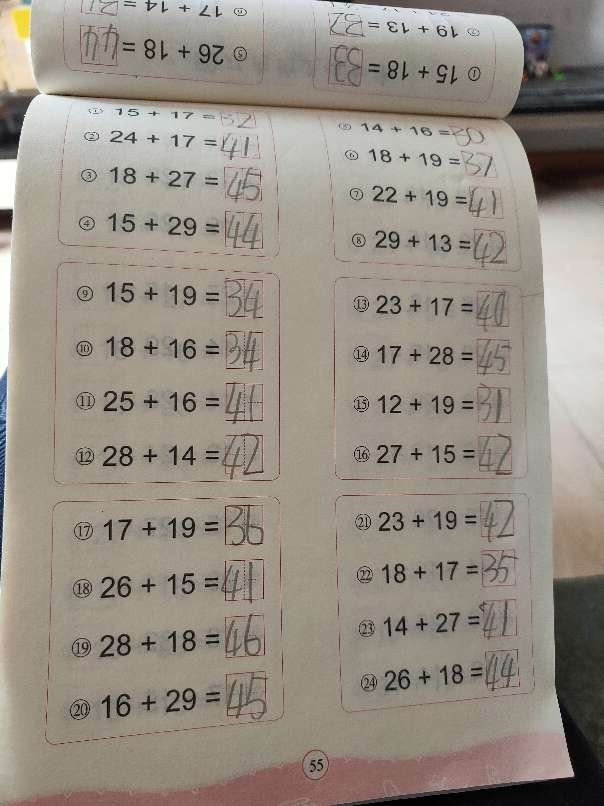 ⑥ 17 + 14 = 31
19 + 13 = 32
⑤ 26 + 18 = 44
① 15 + 18 = 33
① 15 + 17 = 32
② 24 + 17 = 41
③ 18 + 27 = 45
④ 15 + 29 = 44
⑤ 14 + 16 = 30
⑥ 18 + 19 = 37
⑦ 22 + 19 = 41
⑧ 29 + 13 = 42
⑨ 15 + 19 = 34
⑩ 18 + 16 = 34
⑪ 25 + 16 = 41
⑫ 28 + 14 = 42
⑬ 23 + 17 = 40
⑭ 17 + 28 = 45
⑮ 12 + 19 = 31
⑯ 27 + 15 = 42
⑰ 17 + 19 = 36
⑱ 26 + 15 = 41
⑲ 28 + 18 = 46
⑳ 16 + 29 = 45
㉑ 23 + 19 = 42
㉒ 18 + 17 = 35
㉓ 14 + 27 = 41
㉔ 26 + 18 = 44
55